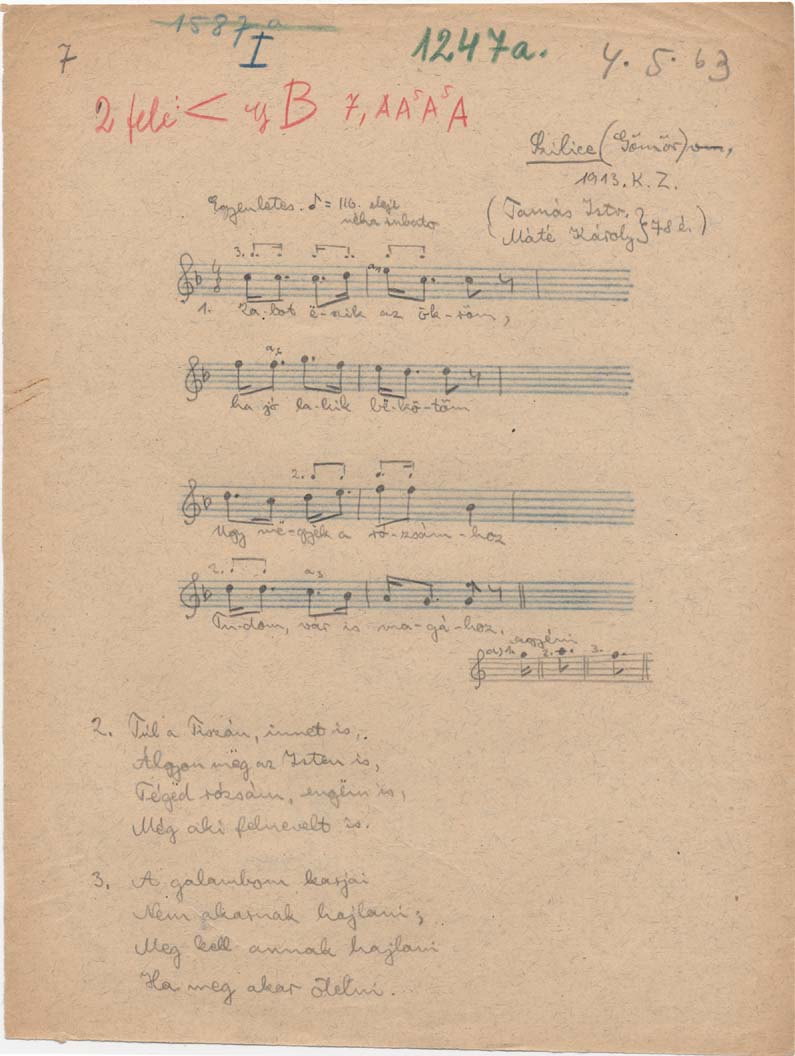 1587a
I
1247a.
7
4. 5. 63
2 felé < B 7, A A⁵ A⁵ A
Szilice (Gömör)
1913. K. Z.
Egyenletes. ♪ = 116. eleje
néha rubato
(Tamás Istv.
Máté Károly } 78 é.)
3.
1. Za-bot ë-szik az ök-röm,
ha jó la-kik bë-kö-töm
2.
Ugy më-gyëk a ró-zsám-hoz
2.
Tu-dom, vár is ma-gá-hoz.
egyéni
a) 1. 2. 3.
2. Túl a Tiszán, innet is,
Álgyon mëg az Isten is,
Tégëd rózsám, engëm is,
Még aki felnevelt is.
3. A galambom karjai
Nem akarnak hajlani;
Meg kell annak hajlani
Ha meg akar ölelni.